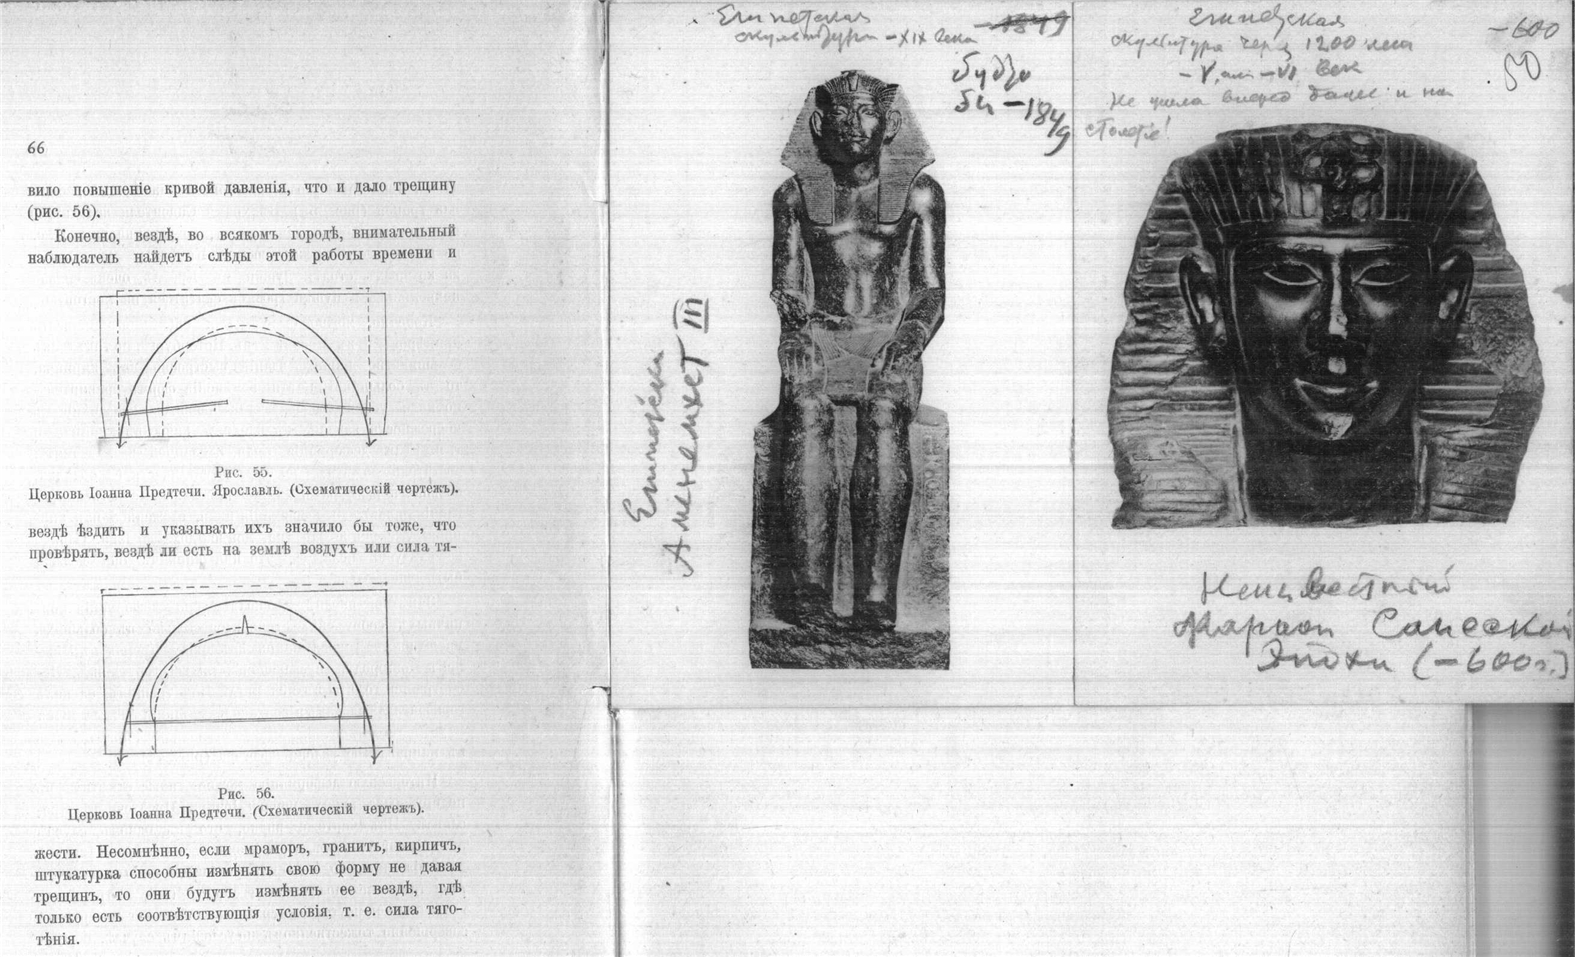 66
вило повышеніе кривой давленія, что и дало трещину
(рис. 56).
Конечно, вездѣ, во всякомъ городѣ, внимательный
наблюдатель найдетъ слѣды этой работы времени и
Рис. 55.
Церковь Іоанна Предтечи. Ярославль. (Схематическій чертежъ).
вездѣ ѣздить и указывать ихъ значило бы тоже, что
провѣрять, вездѣ ли есть на землѣ воздухъ или сила тя-
Рис. 56.
Церковь Іоанна Предтечи. (Схематическій чертежъ).
жести. Несомнѣнно, если мраморъ, гранитъ, кирпичъ,
штукатурка способны измѣнять свою форму не давая
трещинъ, то они будутъ измѣнять ее вездѣ, гдѣ
только есть соотвѣтствующія условія, т. е. сила тяго-
тѣнія.
Египетская
скульптура -XIX века -1849
будто
бы -1849
Аменемхет III
Египетская
скульптура через 1200 лет
-V, или -VI век
Не ушла вперед даже и на
столетие!
-600
50
Неизвестный
Фараон Саисской
Эпохи (-600г.)